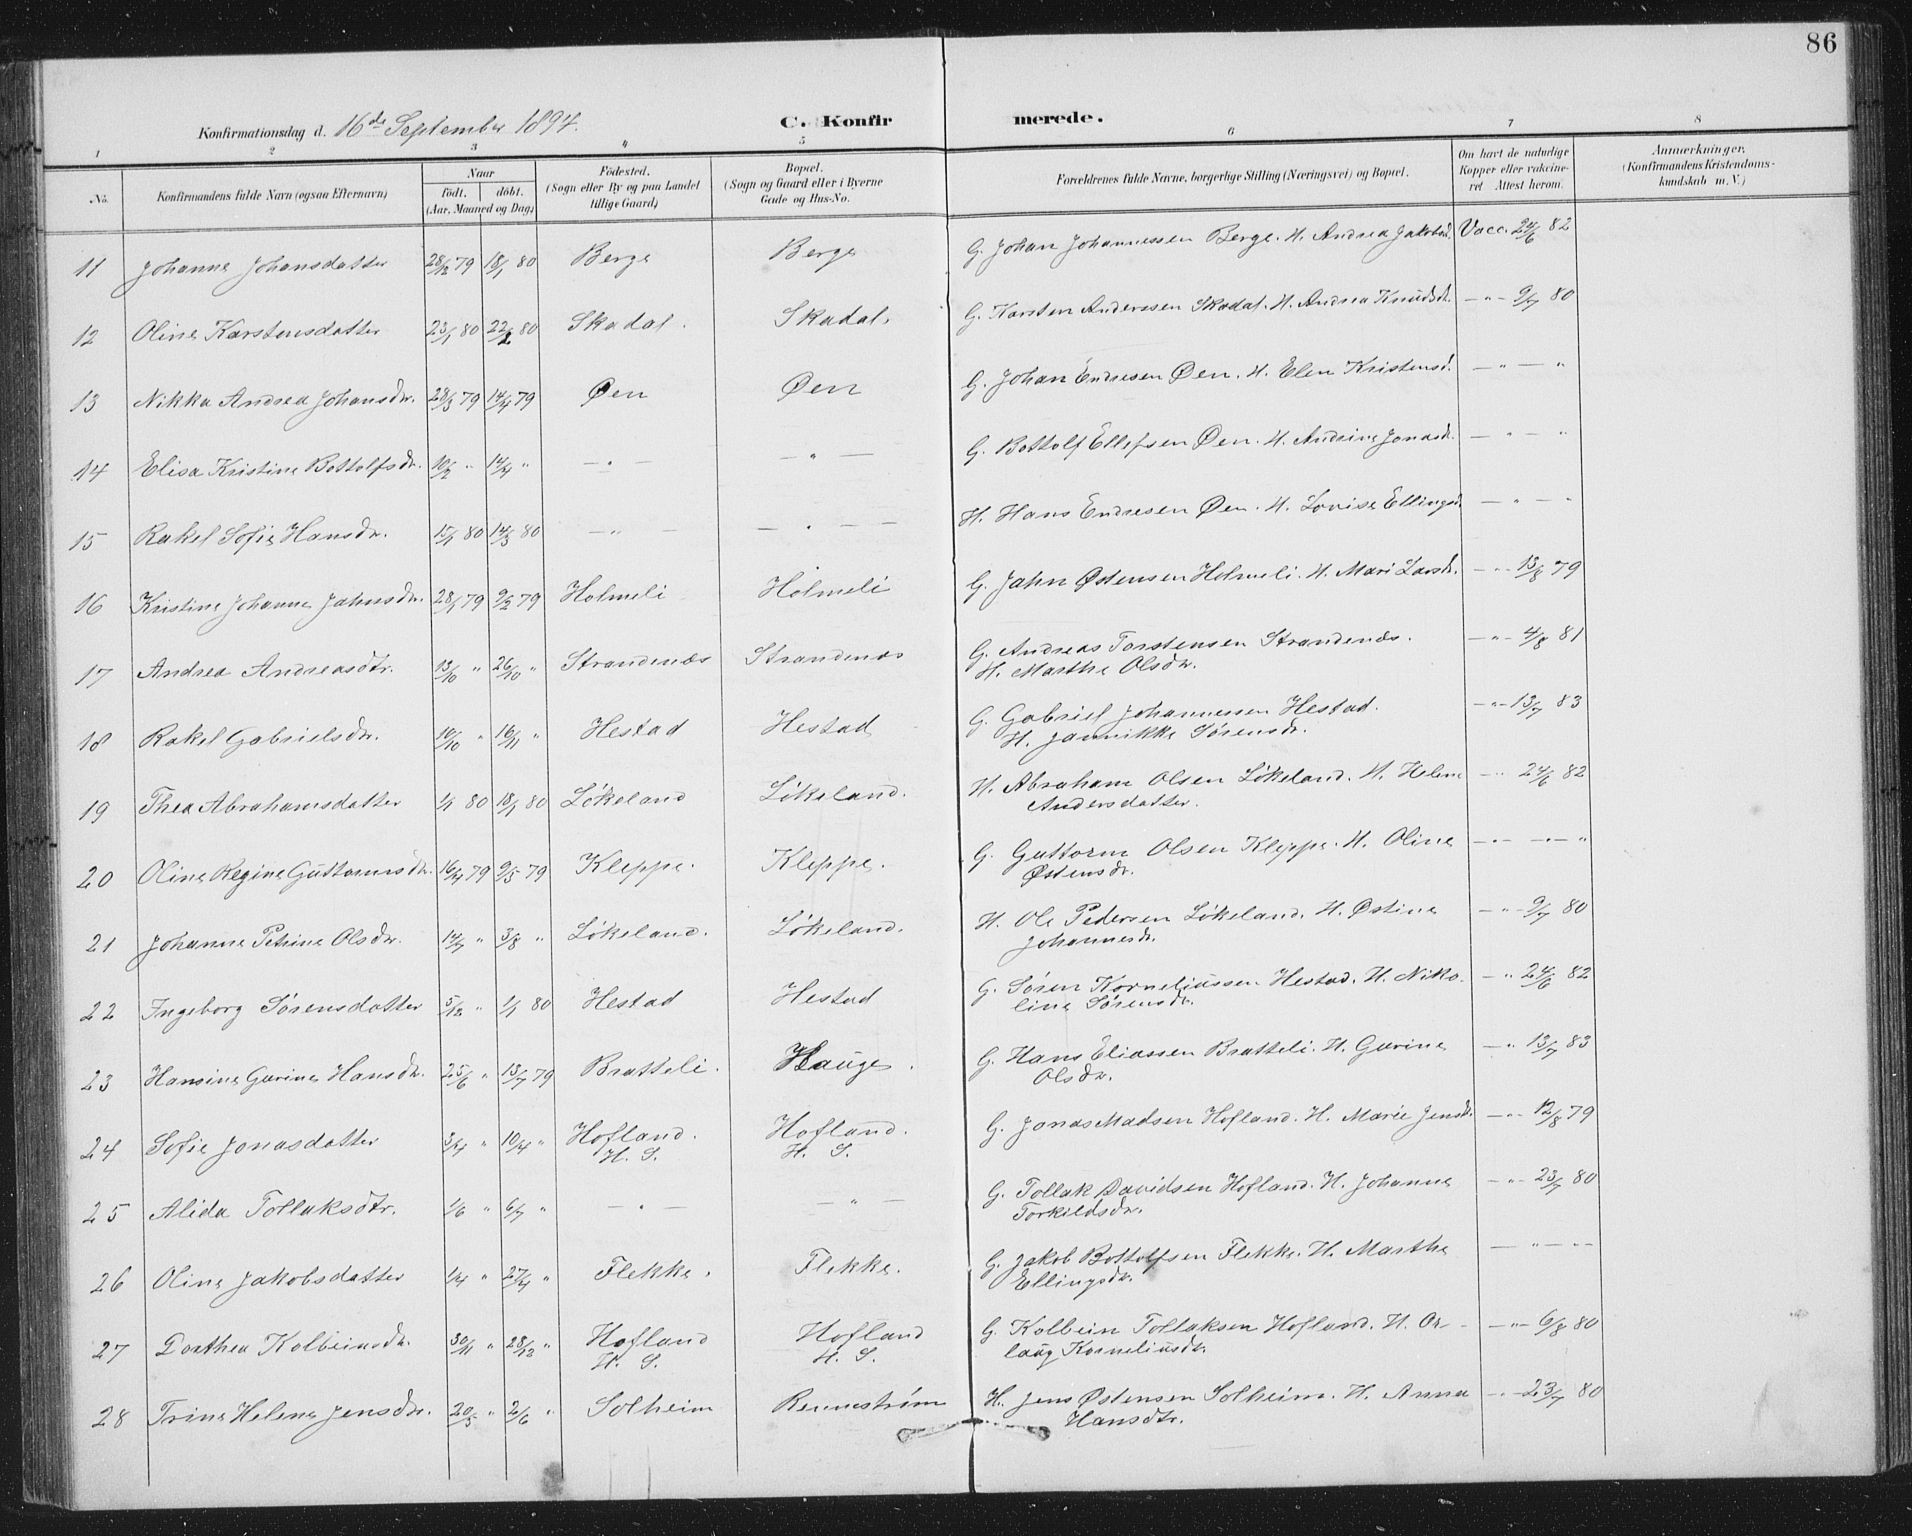 86
Konfirmationsdag d. 16de September 1894. C. Konfirmerede.
1 2 3 4 5 6 7 8
No. Konfirmandens fulde Navn (ogsaa Efternavn) Naar födt. döbt. (Aar, Maaned og Dag) Födested. (Sogn eller By og paa Landet tillige Gaard) Bopæl. (Sogn og Gaard eller i Byerne Gade og Hus-No. Forældrenes fulde Navne, borgerlige Stilling (Næringsvei) og Bopæl. Om havt de naturlige Kopper eller vakcineret Attest herom. Anmærkninger. (Konfirmandens Kristendomskundskab m. V.)
11 Johanne Johansdatter 28/12 79 18/1 80 Berge Berge G. Johan Johannessen Berge. H. Andrea Jakobsd. Vacc. 24/6 82
12 Oline Karstensdatter 23/1 80 22/2 80 Skadal. Skadal. G. Karsten Anderssen Skadal. H. Andrea Knudsdr. — " — 9/7 80
13 Nikka Andrea Johansdr. 28/3 79 14/4 79 Øen Øen G. Johan Endresen Øen. H. Elen Kristensd. — " — "
14 Elisa Kristine Bottolfsdr. 10/2 " 14/4 " — " — — " — G. Bottolf Ellefsen Øen. H. Andrine Jonasdr. — " — "
15 Rakel Sofie Hansdr. 15/1 80 14/3 80 — " — — " — — H. Hans Endresen Øen. H. Lovise Ellingsd. — " — "
16 Kristine Johanne Jahnsdr. 28/1 79 9/2 79 Holmeli Holmeli G. Jahn Østensen Holmeli. H. Mari Larsdr. — " — 13/8 79
17 Andrea Andreasdtr. 13/10 " 26/10 " Strandenæs Strandenæs G. Andreas Torstensen Strandenæs. — " — 4/8 81
H. Marthe Olsdr.
18 Rakel Gabrielsdr. 10/10 " 16/11 " Hestad Hestad G. Gabriel Johannessen Hestad. — " — 13/7 83
H. Jannikke Sørensdr.
19 Thea Abrahamsdatter 1/1 80 18/1 80 Løkeland Løkeland. H. Abraham Olsen Løkeland. H. Helene — " 24/6 82
Andersdatter.
20 Oline Regine Guttormsdr. 16/4 79 9/5 79 Kleppe. Kleppe. G. Guttorm Olsen Kleppe. H. Oline — " — — " — "
Østensdr.
21 Johanne Petrine Olsdr. 14/7 " 3/8 " Løkeland. Løkeland. H. Ole Pedersen Løkeland. H. Østine — " — 9/7 80
Johannesdr.
22 Ingeborg Sørensdatter 5/12 " 1/1 80 Hestad Hestad G. Søren Korneliussen Hestad. H. Niko- — " 24/6 82
line Sørensdr.
23 Hansine Gurine Hansdr. 25/6 " 13/7 79 Bratteli. Hauge. G. Hans Eliassen Bratteli. H. Gurine — " 13/7 83
Olsdr.
24 Sofie Jonasdatter 3/4 " 10/4 " Hofland. Hofland. G. Jonas Madsen Hofland. H. Marie Jensdr. — " — 12/8 79
H. S. H. S.
25 Alida Tollaksdtr. 1/6 " 6/7 " — " — — " — G. Tollak Davidsen Hofland. H. Johanne — " — 23/7 80
Torkildsdr.
26 Oline Jakobsdatter 1/4 " 27/4 " Flekke. Flekke. G. Jakob Bottolfsen Flekke. H. Marthe — " — " —
Ellingsdr.
27 Dorthea Kolbeinsdr. 30/11 " 28/12 " Hofland Hofland G. Kolbein Tollaksen Hofland. H. Or- — " — 6/8 80
H. S. H. S. laug Korneliusdr.
28 Trine Helene Jensdr. 20/5 " 2/6 " Solheim Rennestrøm H. Jens Østensen Solheim. H. Anna — " — 23/7 80
Hansdtr.